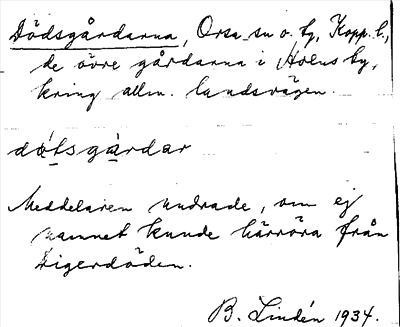 Dödsgårdarna, Orsa sn o. by, Kopp. l.,
de övre gårdarna i Holens by,
kring allm. landsvägen.
dɷ́tsgàrdar
Meddelaren undrade, om ej
namnet kunde härröra från
Digerdöden.
B. Lindén 1934.